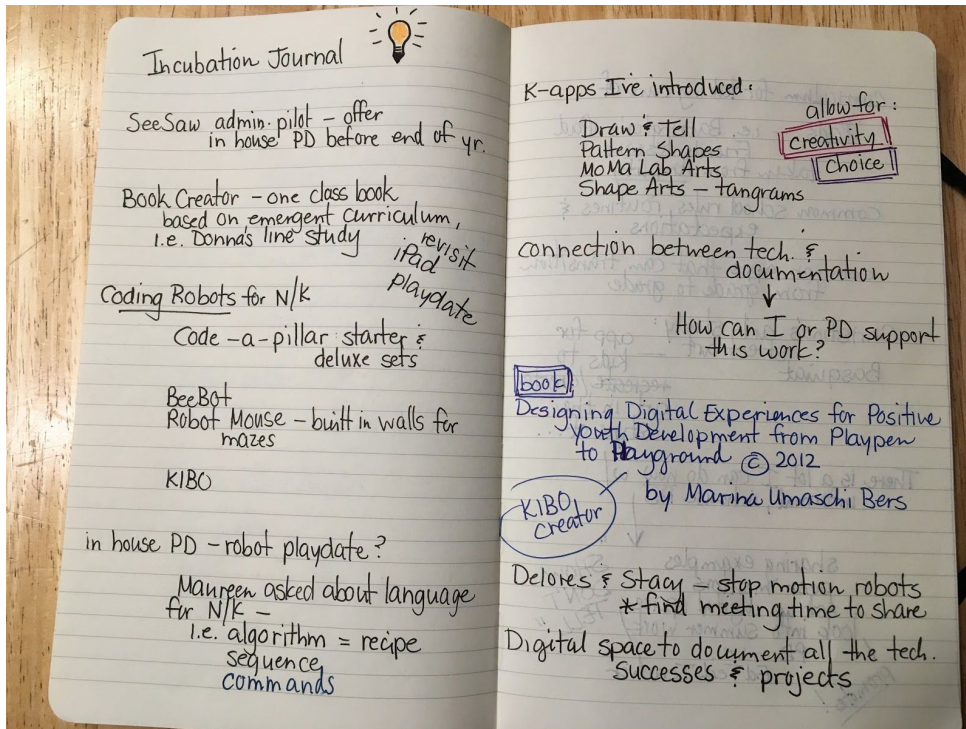 Incubation Journal
SeeSaw admin. pilot – offer
in house PD before end of yr.
Book Creator – one class book
based on emergent curriculum,
i.e. Donna's line study
revisit
iPad
playdate
Coding Robots for N/K
Code-a-pillar: starter &
deluxe sets
BeeBot
Robot Mouse – built in walls for
mazes
KIBO
in house PD – robot playdate?
Maureen asked about language
for N/K –
i.e. algorithm = recipe
sequence
commands
K-apps I've introduced:
Draw & Tell
Pattern Shapes
MoMa Lab Arts
Shape Arts – tangrams
allow for:
creativity
choice
connection between tech. &
documentation
↓
How can I or PD support
this work?
book:
Designing Digital Experiences for Positive
youth Development from Playpen
to Playground © 2012
by Marina Umaschi Bers
KIBO
creator
Delores & Stacy – stop motion robots
*find meeting time to share
Digital space to document all the tech.
Successes & projects